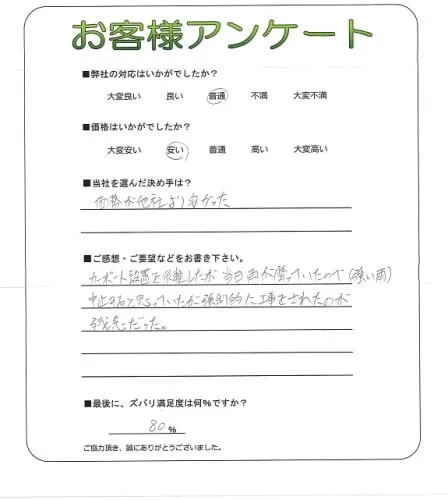 お客様アンケート
■弊社の対応はいかがでしたか？
大変良い 良い 普通 不満 大変不満
■価格はいかがでしたか？
大変安い 安い 普通 高い 大変高い
■当社を選んだ決め手は？
価格が他社より安かった
■ご感想・ご要望などをお書き下さい。
カーポート設置を依頼したが当日雨が降っていたので(強い雨)
中止すると思っていたが強制的に工事をされたのが
残念だった。
■最後に、ズバリ満足度は何％ですか？
80％
ご協力頂き、誠にありがとうございました。